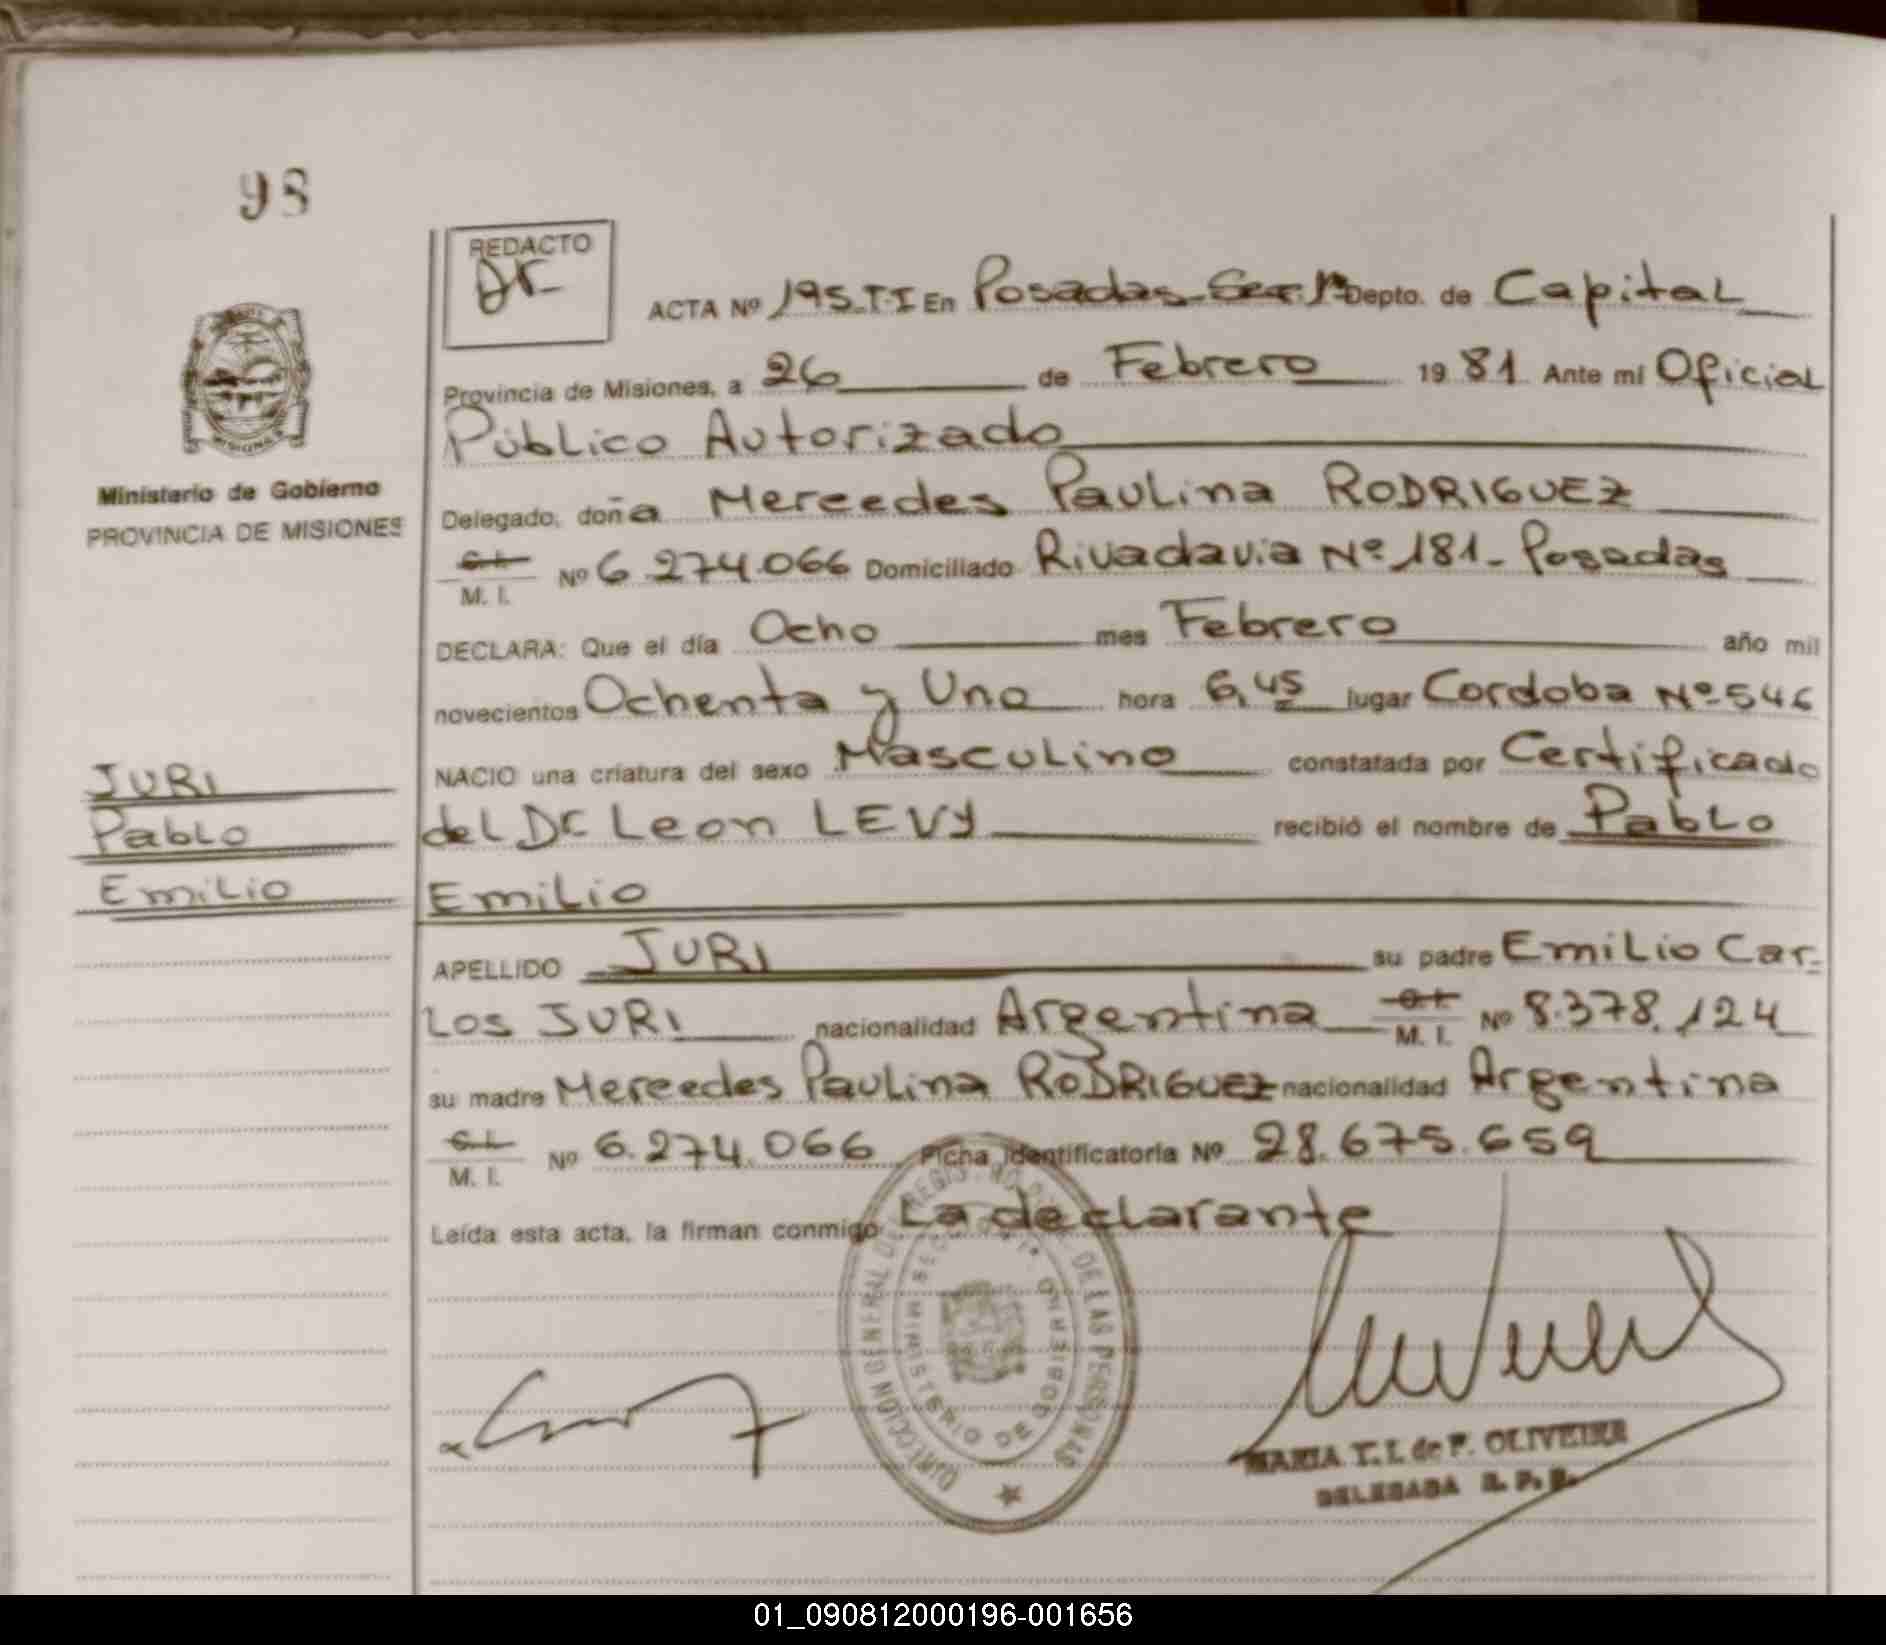 98
REDACTO
ACTA Nº 195.T-I En Posadas-Sec.1ª Depto. de Capital
Provincia de Misiones, a 26 de Febrero 1981 Ante mí Oficial
Público Autorizado
Ministerio de Gobierno
PROVINCIA DE MISIONES
MISIONES
Delegado, doña Mercedes Paulina RODRIGUEZ
C.I. M. I. Nº 6.274.066 Domiciliado Rivadavia Nº 181- Posadas
DECLARA: Que el día Ocho mes Febrero año mil
novecientos Ochenta y Uno hora 6,45 lugar Cordoba Nº 546
NACIO una criatura del sexo Masculino constatada por Certificado
del Dr Leon LEVY recibió el nombre de Pablo
Emilio
JURI
Pablo
Emilio
APELLIDO JURI su padre Emilio Car-
los JURI nacionalidad Argentina C.I. M. I. Nº 8.378.124
su madre Mercedes Paulina RODRIGUEZ nacionalidad Argentina
C.I. M. I. Nº 6.274.066 Ficha identificatoria Nº 28.675.659
Leída esta acta, la firman conmigo La declarante
DIRECCION GENERAL DEL REGISTRO DE LAS PERSONAS
MINISTERIO DE GOBIERNO
MARIA T. I. de F. OLIVEIRA
DELEGADA R. P. P.
01_090812000196-001656